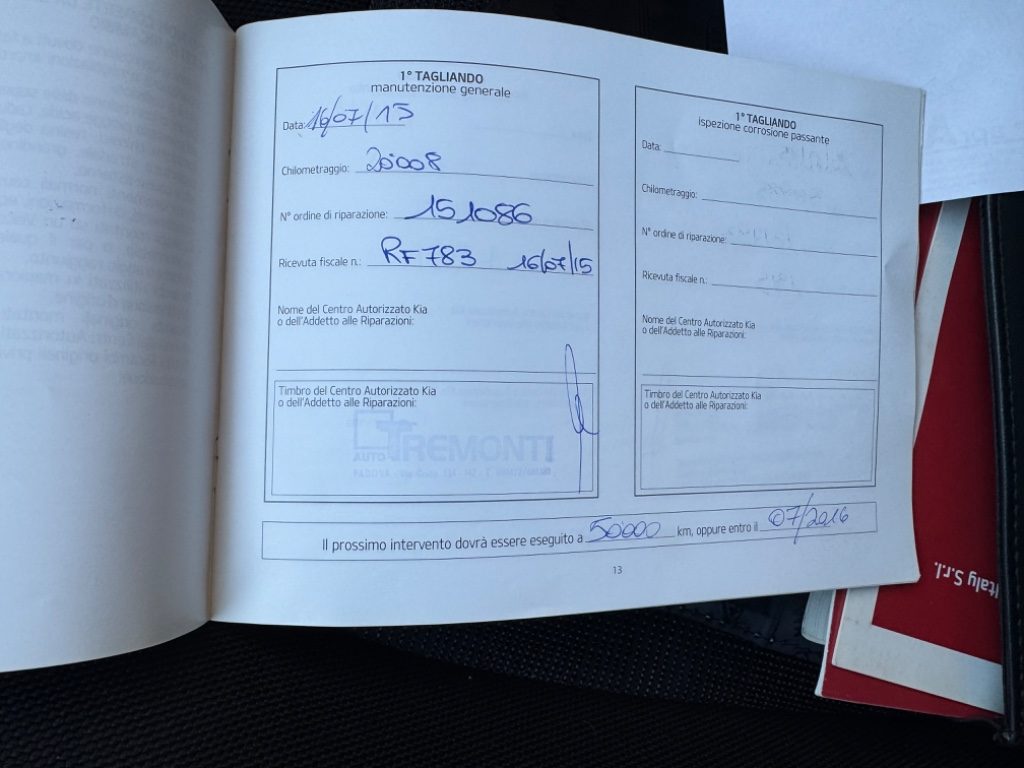 1° TAGLIANDO
manutenzione generale
Data: 16/07/15
Chilometraggio: 20008
N° ordine di riparazione: 151086
Ricevuta fiscale n.: RF783 16/07/15
Nome del Centro Autorizzato Kia
o dell'Addetto alle Riparazioni:
Timbro del Centro Autorizzato Kia
o dell'Addetto alle Riparazioni:
AUTO TREMONTI
PADOVA
1° TAGLIANDO
ispezione corrosione passante
Data:
Chilometraggio:
N° ordine di riparazione:
Ricevuta fiscale n.:
Nome del Centro Autorizzato Kia
o dell'Addetto alle Riparazioni:
Timbro del Centro Autorizzato Kia
o dell'Addetto alle Riparazioni:
Il prossimo intervento dovrà essere eseguito a 50000 km, oppure entro il 07/2016
13
Italy S.r.l.